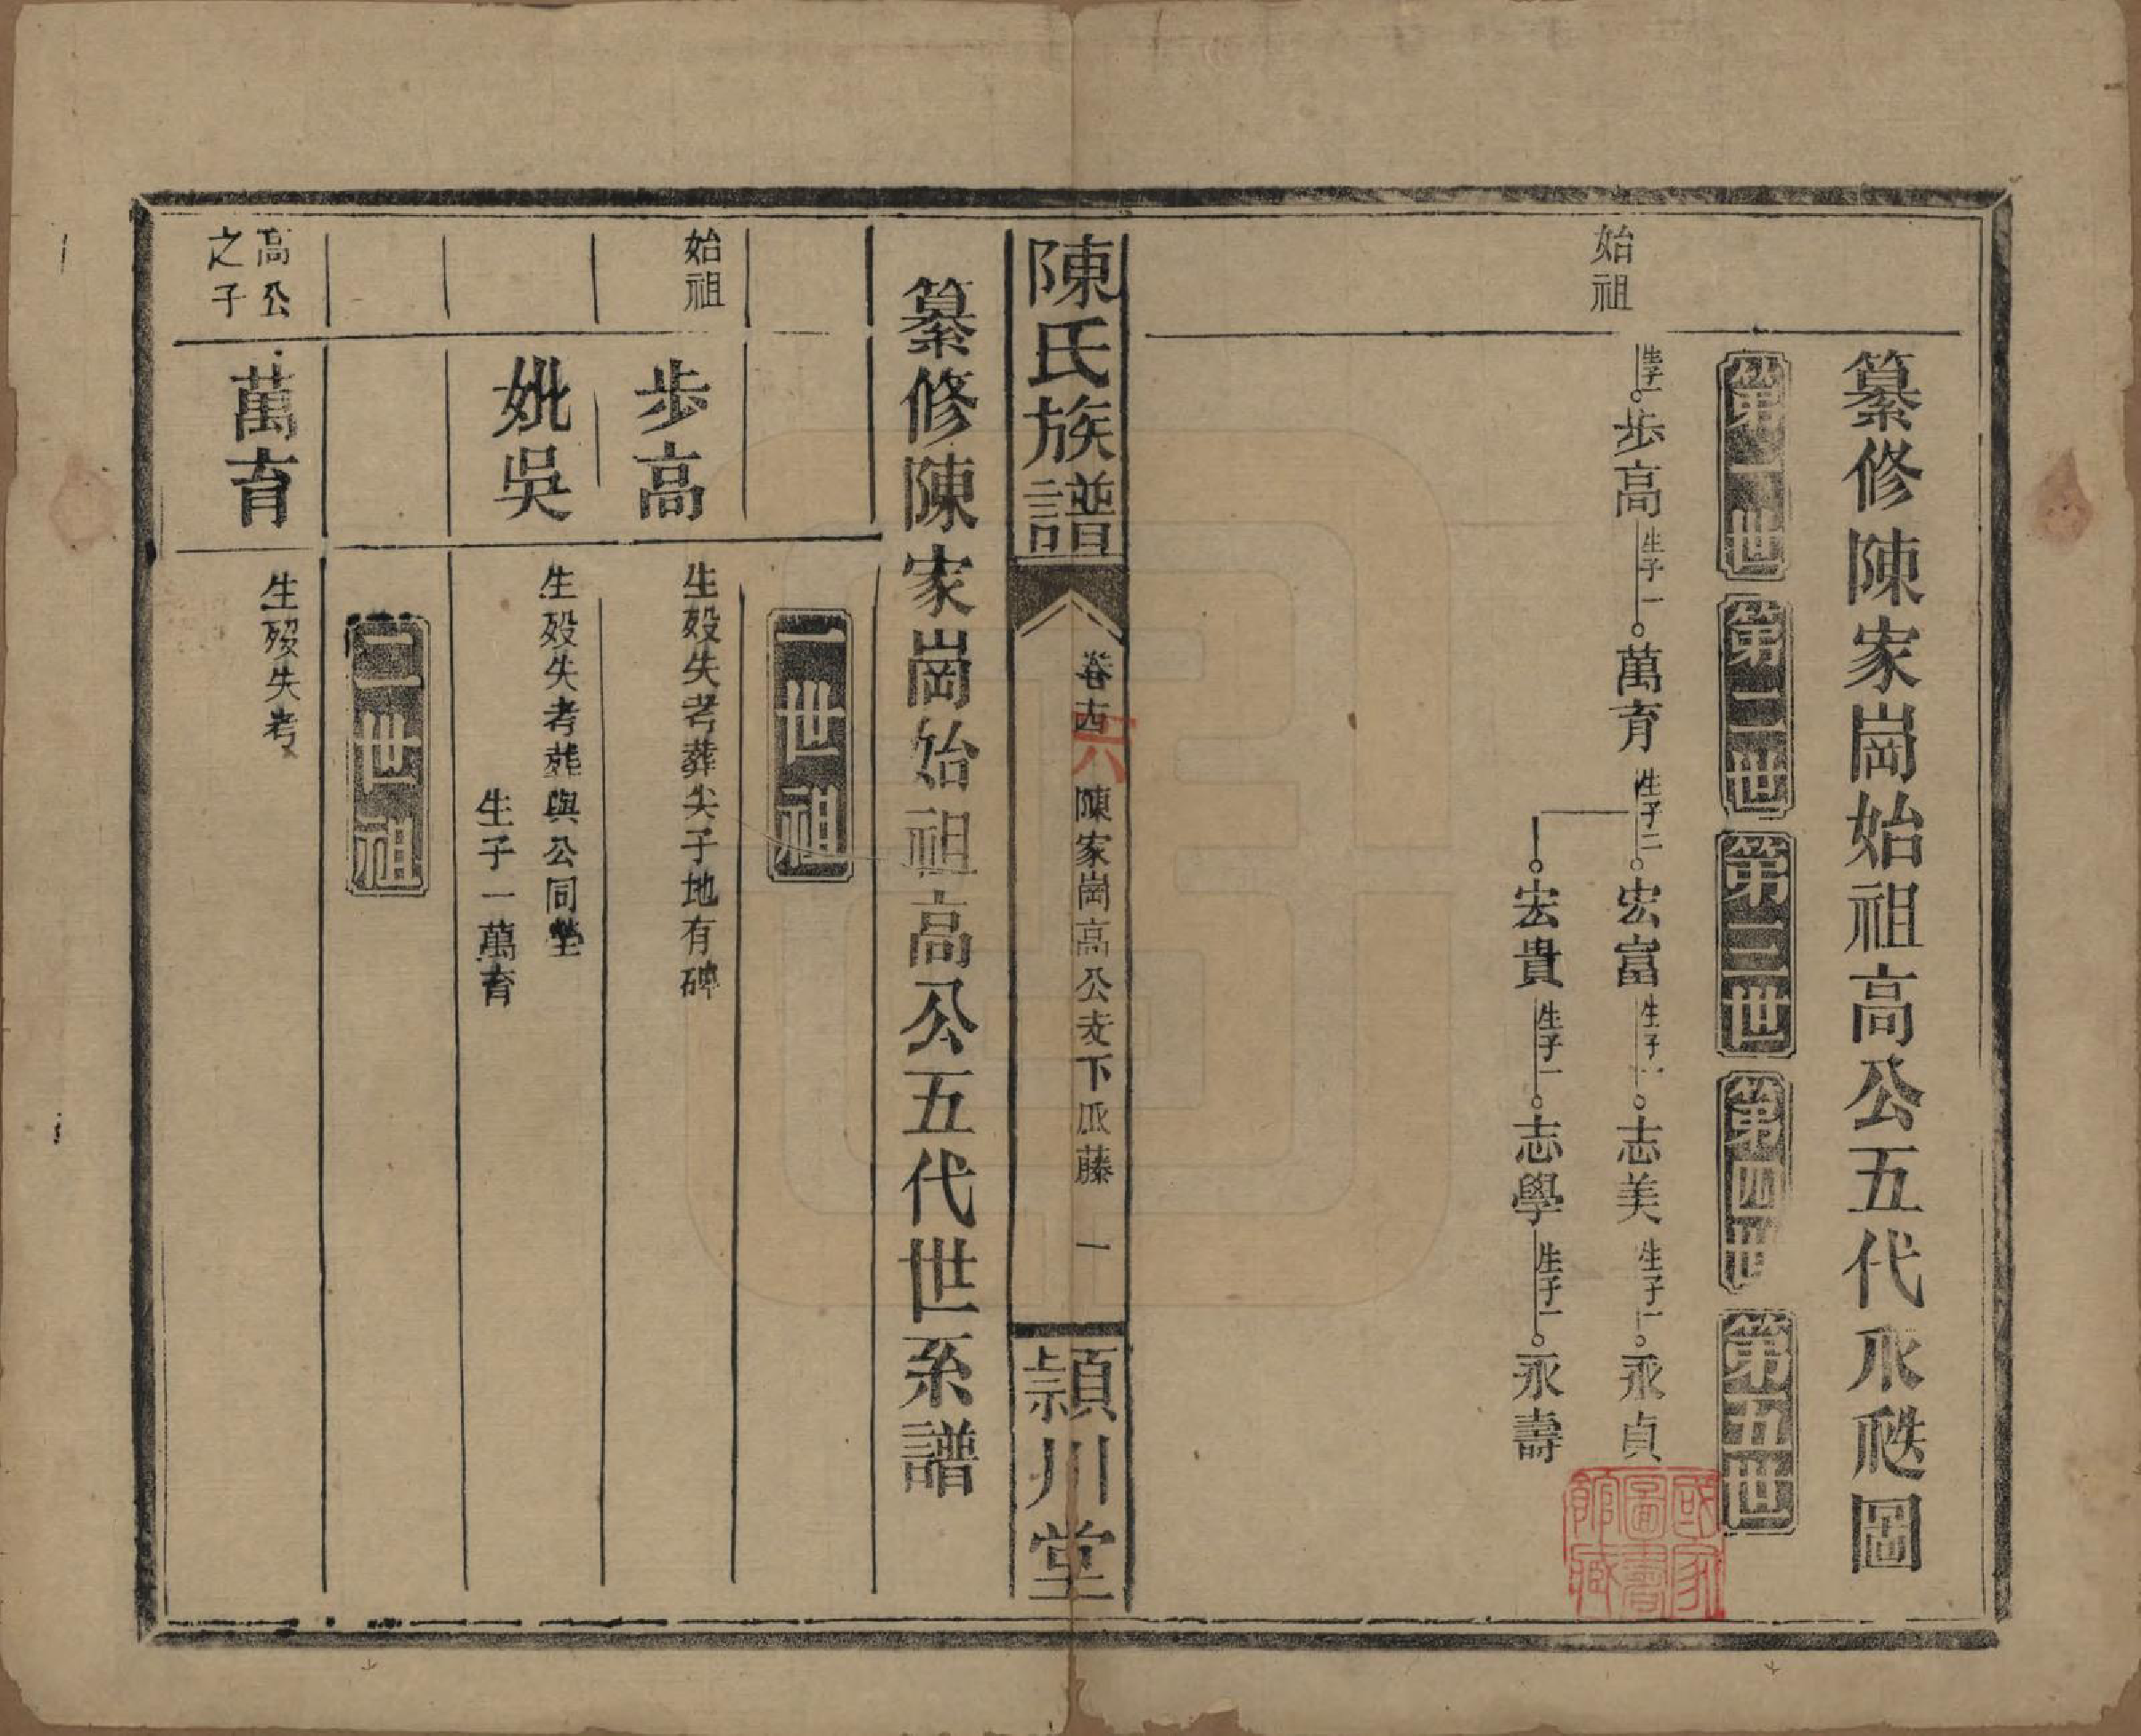 纂修陳家崗始祖高公五代𠂢慜圖
第一世
第二世
第三世
第四世
第五世
始祖
生子一
步高
生子一
萬育
生子二
宏富
生子一
志美
生子一
永貞
宏貴
生子一
志學
生子一
永壽
國家圖書館藏
陳氏族譜
卷十六
陳家崗高公支下𠂢藤
一
潁川堂
纂修陳家崗始祖高公五代世系譜
一世祖
始祖
步高
生歿失考葬尖子地有碑
妣吳
生歿失考葬與公同塋
生子一萬育
二世祖
高公
之子
萬育
生歿失考